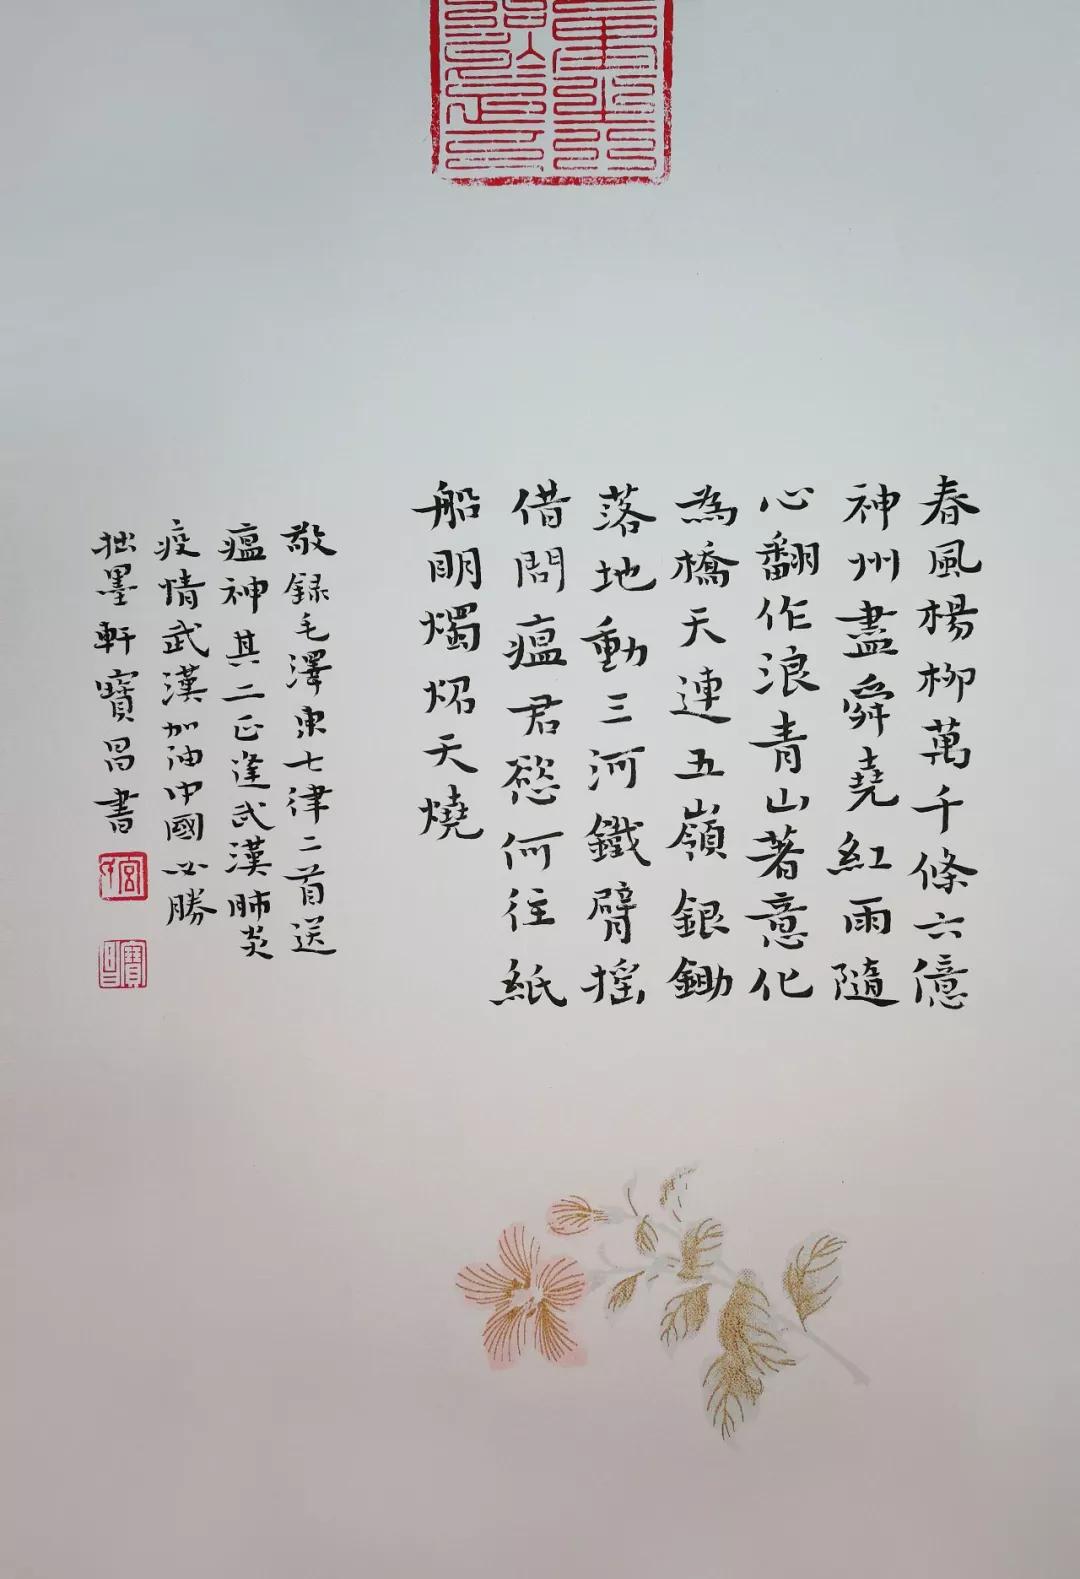 春風楊柳萬千條六億
神州盡舜堯紅雨隨
心翻作浪青山著意化
為橋天連五嶺銀鋤
落地動三河鐵臂搖
借問瘟君慾何往紙
船明燭炤天燒
敬録毛澤東七律二首送
瘟神其二正逢武漢肺炎
疫情武漢加油中國必勝
拙墨軒寶昌書
寶昌